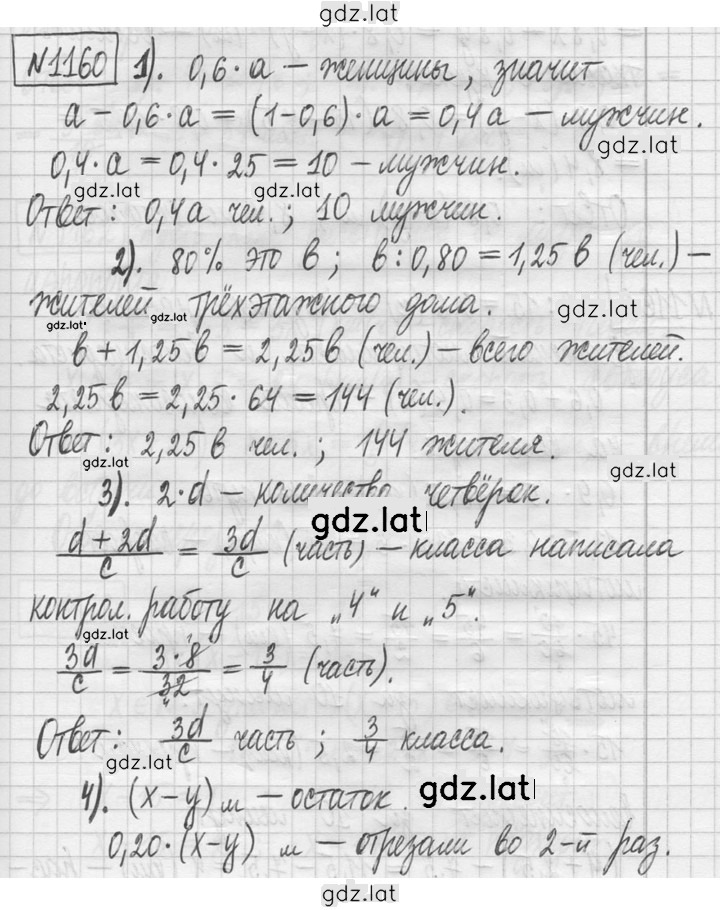 gdz.lat
№1160 1). 0,6·a – женщины, значит
a – 0,6·a = (1–0,6)·a = 0,4a – мужчин.
gdz.lat
0,4·a = 0,4·25 = 10 – мужчин.
gdz.lat gdz.lat
Ответ: 0,4a чел.; 10 мужчин.
2). 80% это в; в:0,80 = 1,25в (чел.) –
жителей трёхэтажного дома.
gdz.lat gdz.lat gdz.lat
в + 1,25в = 2,25в (чел.) – всего жителей.
2,25в = 2,25·64 = 144 (чел.).
Ответ: 2,25в чел.; 144 жителя.
gdz.lat gdz.lat
3). 2·d – количество четвёрок.
gdz.lat
d+2d/c = 3d/c (часть) – класса написала
контрол. работу на „4“ и „5“.
gdz.lat
3d/c = 3·8/32 = 3/4 (часть).
Ответ: 3d/c часть; 3/4 класса.
gdz.lat
4). (x–y) м – остаток.
gdz.lat
0,20·(x–y) м – отрезали во 2-й раз.
gdz.lat